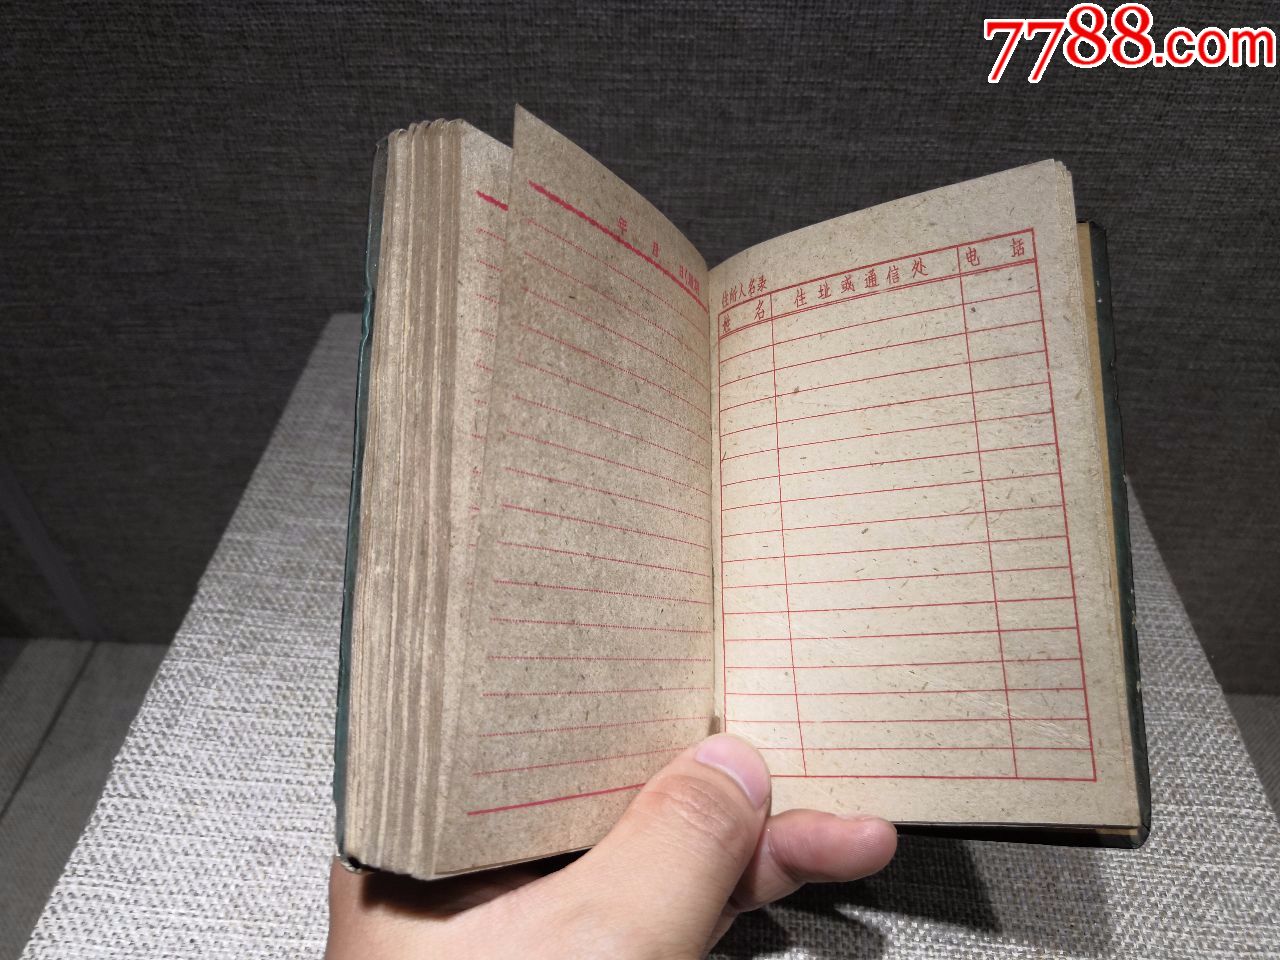 7788.com
年 月 日(星期
住所人名录
姓 名 住址或通信处 电 话